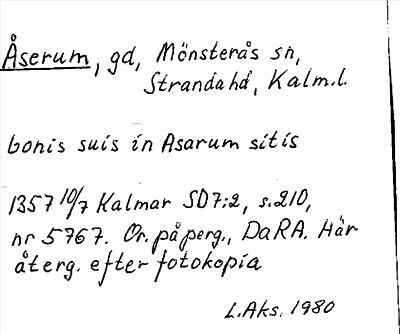 Åserum, gd, Mönsterås sn,
Strandahd, Kalm.l.
bonis suis in Asarum sitis
1357 10/7 Kalmar SD7:2, s.210,
nr 5767. Or. på perg., DaRA. Här
återg. efter fotokopia
L.Aks. 1980